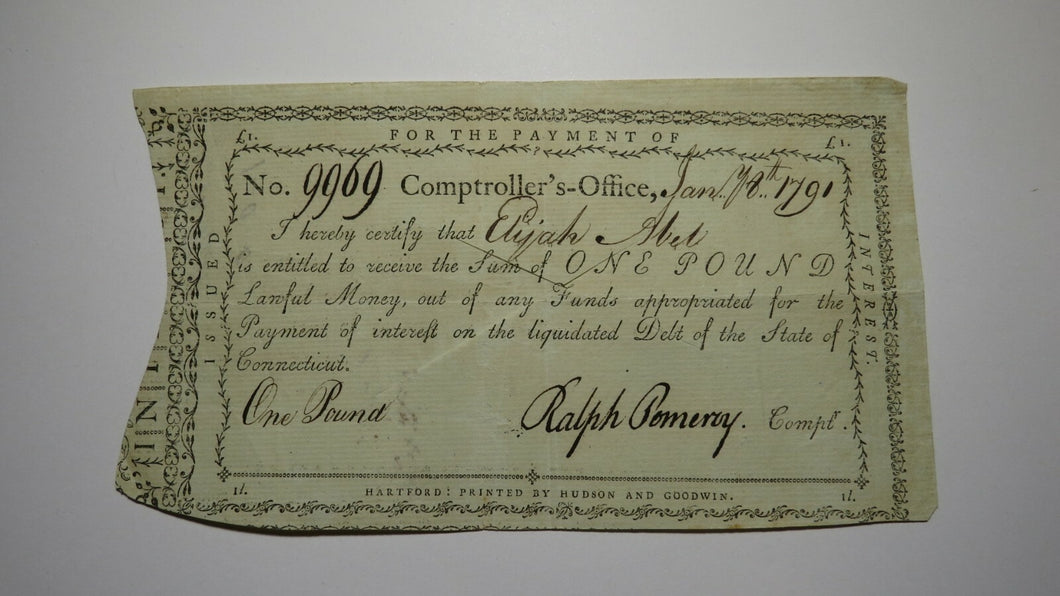 £1. FOR THE PAYMENT OF £1.
No. 9969 Comptroller's-Office, Jany. 18th. 1791
I hereby certify that Elijah Abel
is entitled to receive the Sum of ONE POUND
Lawful Money, out of any Funds appropriated for the
Payment of interest on the liquidated Debt of the State of
Connecticut.
One Pound Ralph Pomeroy. Comptr.
1l. HARTFORD: PRINTED BY HUDSON AND GOODWIN. 1l.
ISSUED
INTEREST.